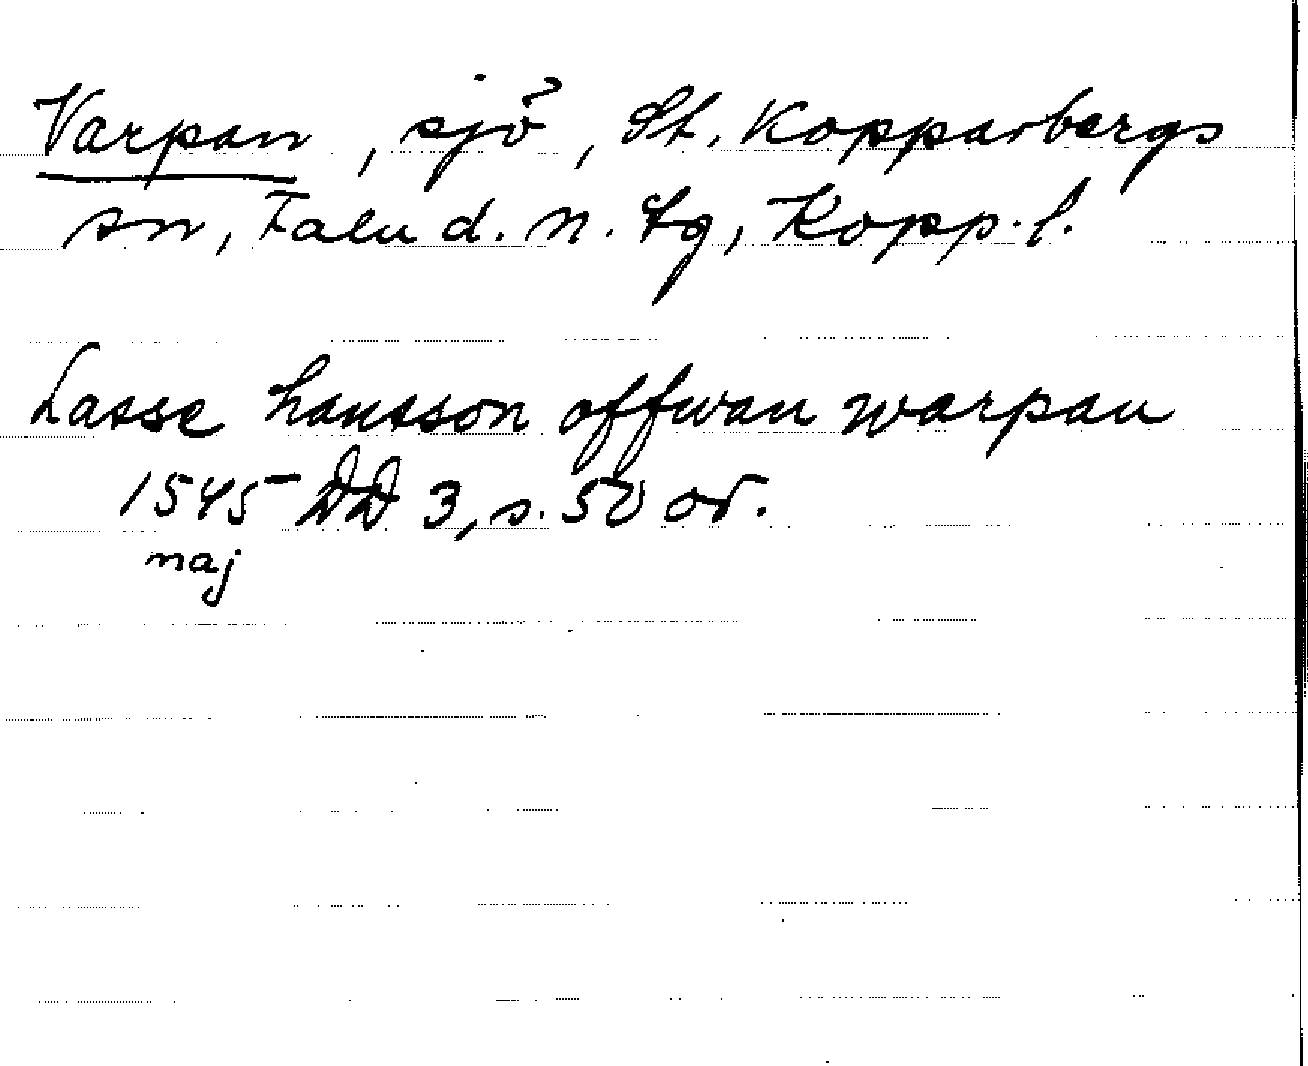 Varpan, sjö, St. Kopparbergs
sn, Falu d. n. tg, Kopp. l.
Lasse hansson offwan warpan
1545 DD 3, s. 50 or.
maj